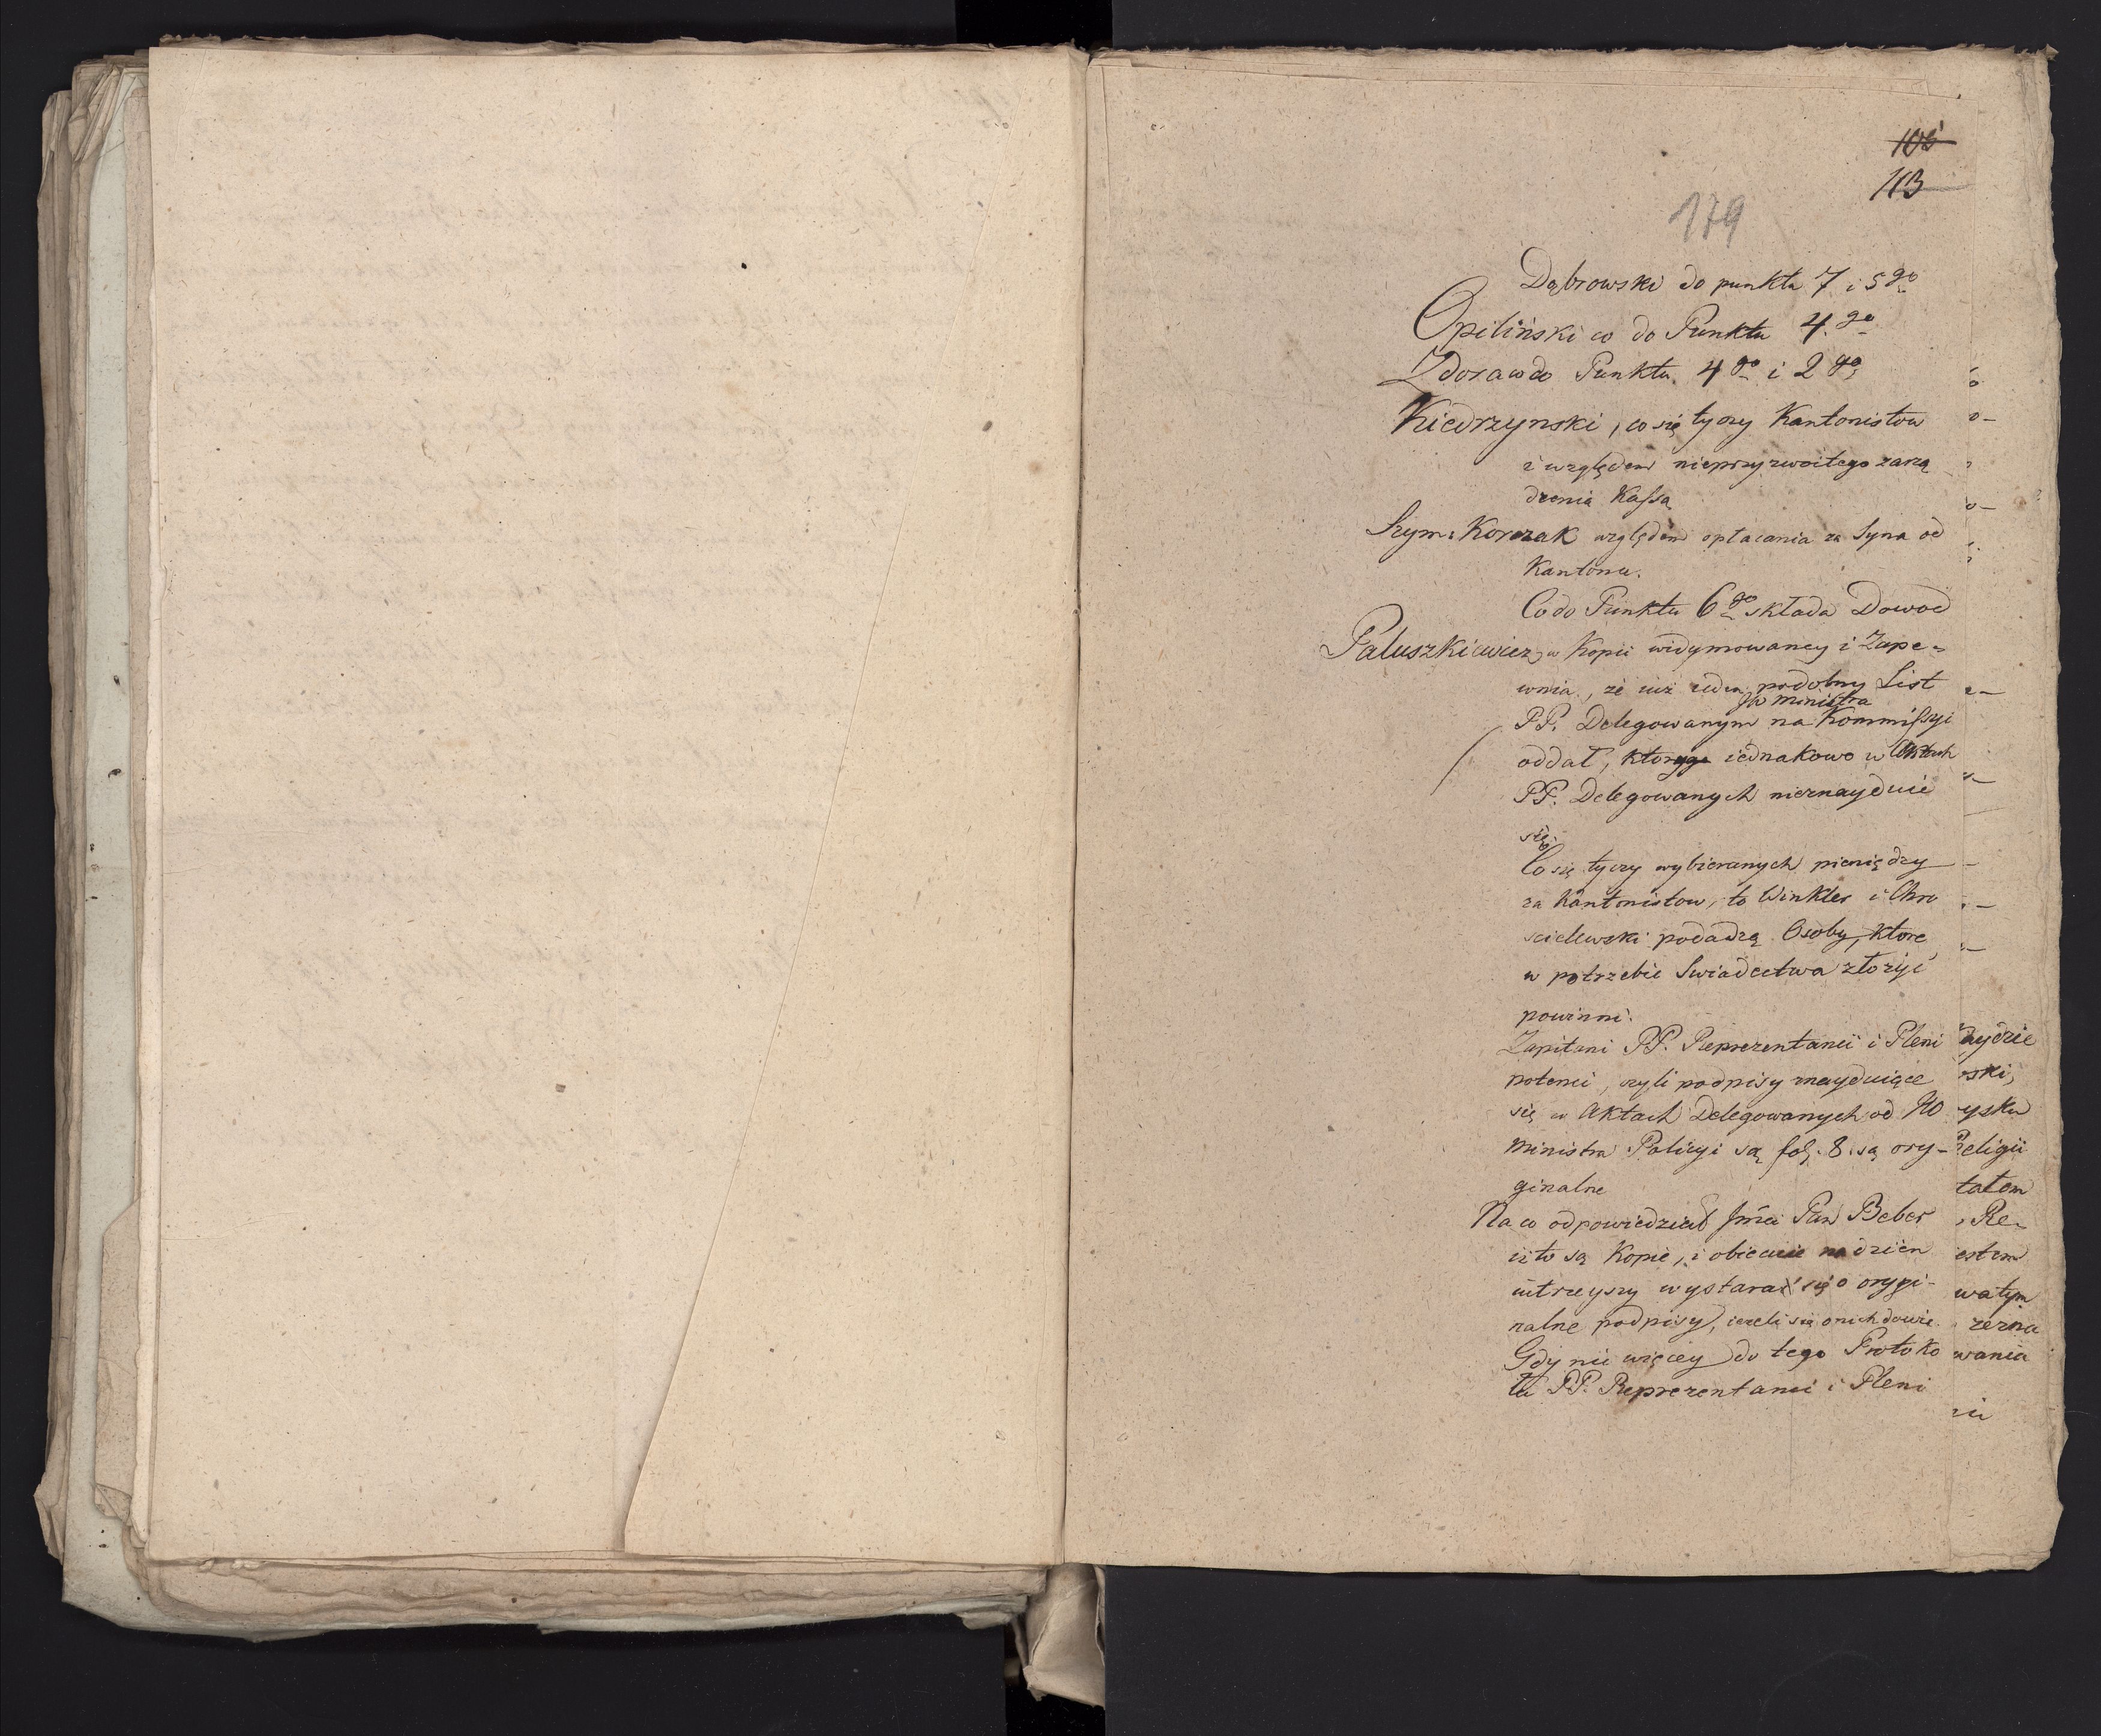 106
113
179
Dąbrowski do punktu 7 i 5go
Opiliński co do Punktu 4.go
Zdora co do Punktu. 4go i 2go
Kiedrzynski, co się tyczy Kantonistow
i względem nieprzyzwoitego zarzą
dzenia Kassą
Szym: Korczak względem opłacania za Syna od
Kantonu.
Co do Punktu 6go składa Dowod
Paluszkiewicz w Kopii widymowaney i Zape=
wnia, że iuż ieden podobny List
JW Ministra
PP. Delegowanym na Kommissyi
oddał, ktorego iednakowo w Aktach
PP. Delegowanych nieznayduie
się.
Co się tyczy wybieranych pieniędzy
za Kantonistow, to Winkler i Chro
scielewski podadzą Osoby, ktore
w potrzebie Swiadectwa złożyć
powinni.
Zapitani PP. Reprezentanci i Pleni
potenci, czyli podpisy znayduiące
się w Aktach Delegowanych od JW
Ministra Policyi są fol. 8. są ory-
ginalne
Na co odpowiedział Jmci Pan Beber
iż to są Kopie, i obiecuie na dzien
iutrzeyszy wystarać się o orygi-
nalne podpisy, ieżeli się o nich dowie.
Gdy nic więcey do tego Protoko
łu PP. Reprezentanci i Pleni
aydzie
ski,
ysku
Religii
tatem
, Re-
estem
watym
zezna
wania